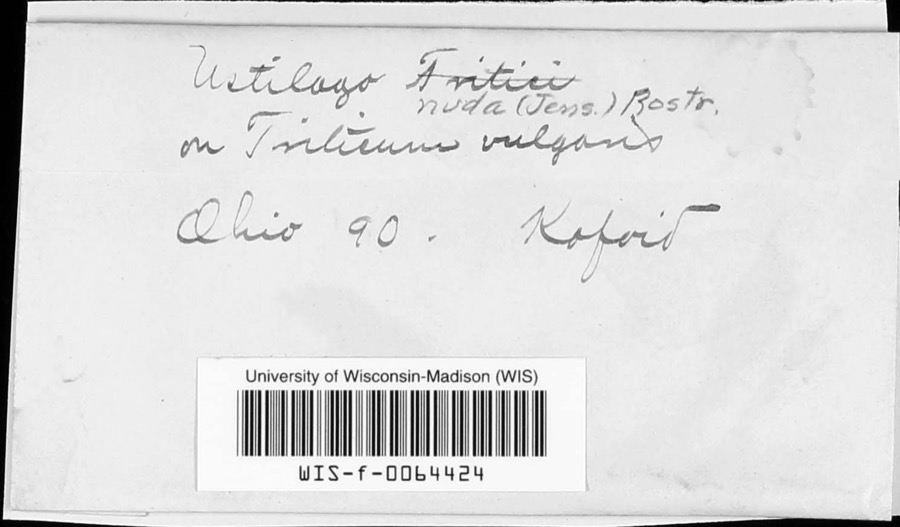 Ustilago Tritici
nuda (Jens.) Rostr.
on Triticum vulgaris
Ohio 90. Kofoid
University of Wisconsin-Madison (WIS)
WIS-f-0064424